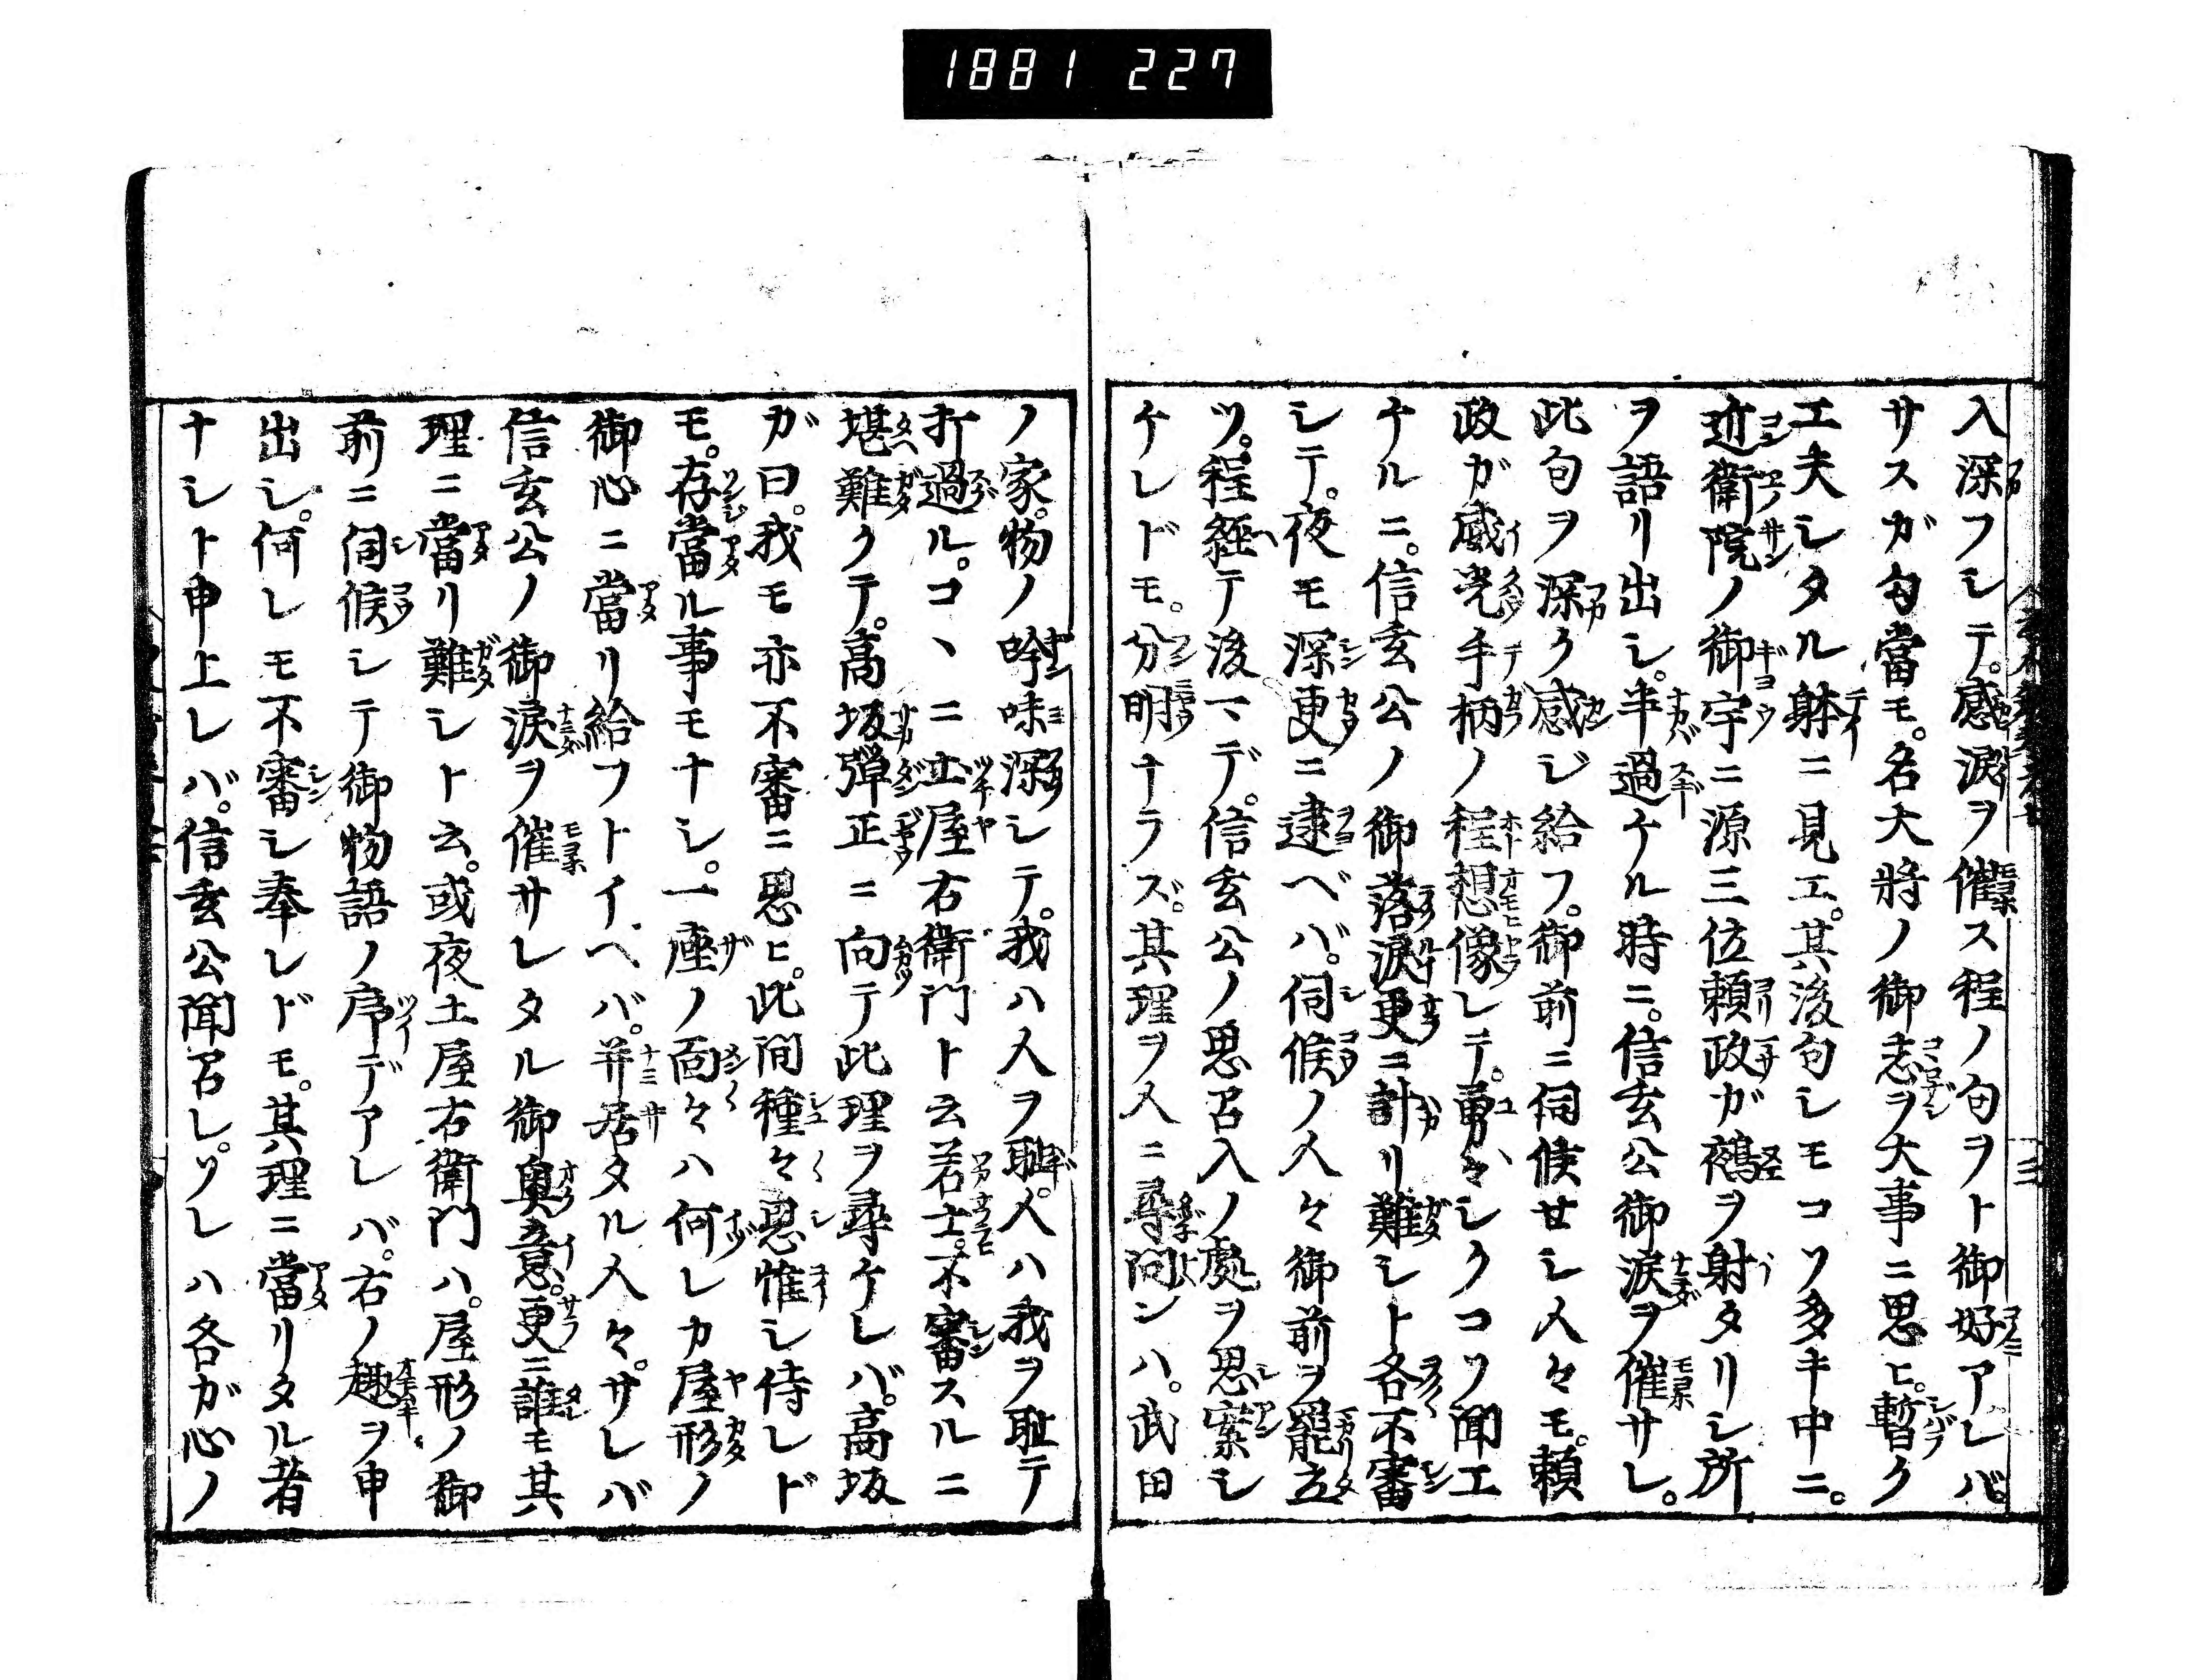 1881 227
入深フシテ。感涙ヲ催ス程ノ句ヲト御好アレバ。
サスガ匂當モ。名大將ノ御志ヲ大事ニ思ヒ。暫ク
工夫シタル躰ニ見エ。其後句シモコソ多キ中ニ。
近衛院ノ御宇ニ源三位頼政ガ鵺ヲ射タリシ所
ヲ語リ出シ。半過ケル時ニ。信玄公御涙ヲ催サレ。
此句ヲ深ク感ジ給フ。御前ニ伺候セシ人々モ。頼
政ガ威光手柄ノ程想像レテ。勇々シクコソ聞エ
ケルニ。信玄公ノ御落涙更ニ計リ難シト各不審
シテ。夜モ深更ニ逮ベバ。伺候ノ人々御前ヲ罷立
ツ。程経テ後マデ。信玄公ノ思召入ノ處ヲ思案シ
ケレドモ。分明ナラズ。其理ヲ人ニ尋問ンハ。武田
ノ家。物ノ吟味深シテ。我ハ人ヲ恥。人ハ我ヲ恥テ
打過ル。コヽニ土屋右衛門ト云若士。不審スルニ
堪難クテ。高坂彈正ニ向テ此理ヲ尋ケレバ。高坂
ガ曰。我モ亦不審ニ思ヒ。此間種々思惟シ侍レド
モ。存當ル事モナシ。一座ノ面々ハ何レカ屋形ノ
御心ニ當リ給フトイヘバ。并居タル人々。サレバ
信玄公ノ御涙ヲ催サレタル御奥意。更ニ誰モ其
理ニ當リ難シト云。或夜土屋右衛門ハ。屋形ノ御
前ニ伺候シテ御物語ノ序デアレバ。右ノ趣ヲ申
出シ。何レモ不審シ奉レドモ。其理ニ當リタル者
ナシト申上レバ。信玄公聞召レ。ソレハ各ガ心ノ